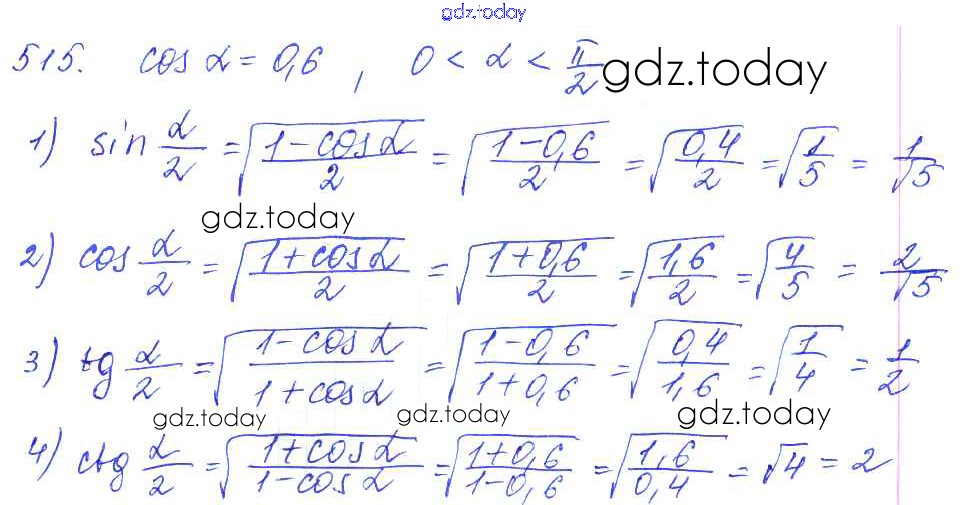 gdz.today
515. cos α = 0,6 , 0 < α < π/2 gdz.today
1) sin α/2 = √((1 - cos α)/2) = √((1 - 0,6)/2) = √(0,4/2) = √(1/5) = 1/√5
gdz.today
2) cos α/2 = √((1 + cos α)/2) = √((1 + 0,6)/2) = √(1,6/2) = √(4/5) = 2/√5
3) tg α/2 = √((1 - cos α)/(1 + cos α)) = √((1 - 0,6)/(1 + 0,6)) = √(0,4/1,6) = √(1/4) = 1/2
gdz.today gdz.today gdz.today
4) ctg α/2 = √((1 + cos α)/(1 - cos α)) = √((1 + 0,6)/(1 - 0,6)) = √(1,6/0,4) = √4 = 2